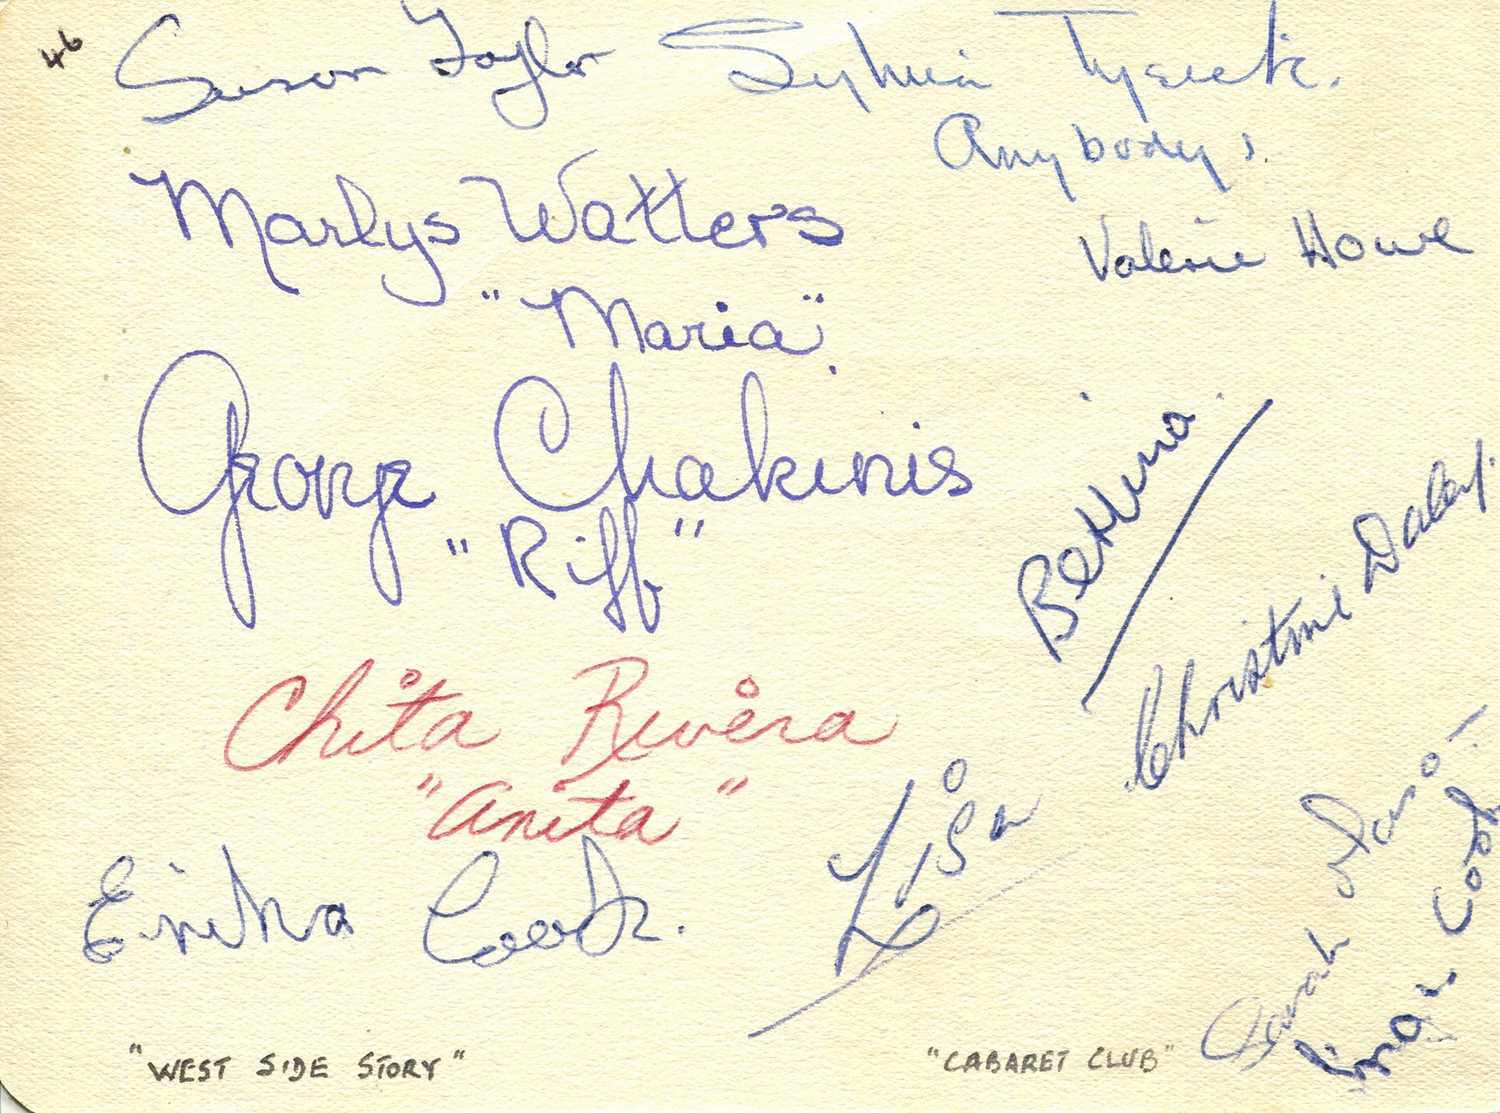 46
Susan Taylor
Sylvia Tysick.
Anybodys.
Marlys Watters
"Maria".
Valerie Howe
George Chakiris
"Riff"
Bettina.
Christine Daley.
Chita Rivera
"Anita"
Lisa
Erika Cook.
Sarah
Lina Cook
"WEST SIDE STORY"
"CABARET CLUB"